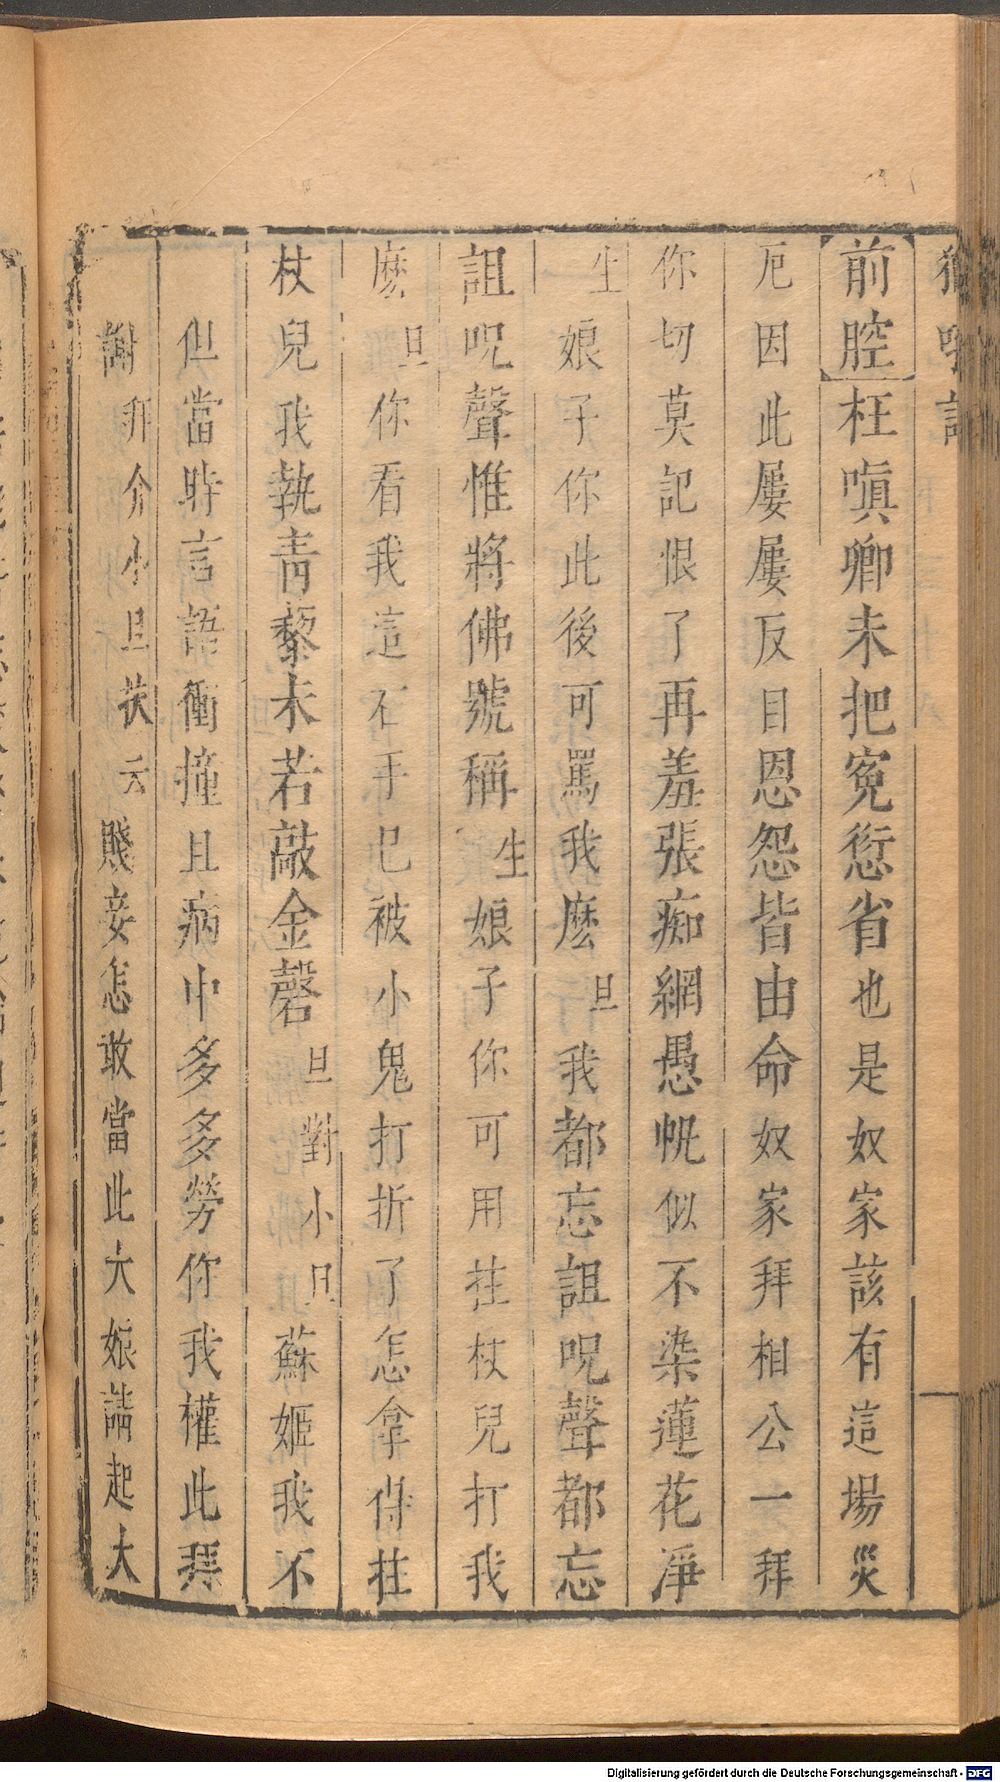 獅吼記
前腔枉嗔卿未把寃愆省也是奴家該有這場災
厄因此屢屢反目恩怨皆由命奴家拜相公一拜
你切莫記恨了再羞張痴網愚㡆似不染蓮花淨
生娘子你此後可罵我麽旦我都忘詛呪聲都忘
詛呪聲惟將佛號稱生娘子你可用拄杖兒打我
麽旦你看我這右手已被小鬼打折了怎拿得拄
杖兒我執青藜未若敲金磬旦對小旦蘇姬我不
但當時言語衝撞且病中多多勞你我權此拜
謝拜介小旦扶云賤妾怎敢當此大娘請起大
Digitalisierung gefördert durch die Deutsche Forschungsgemeinschaft - DFG